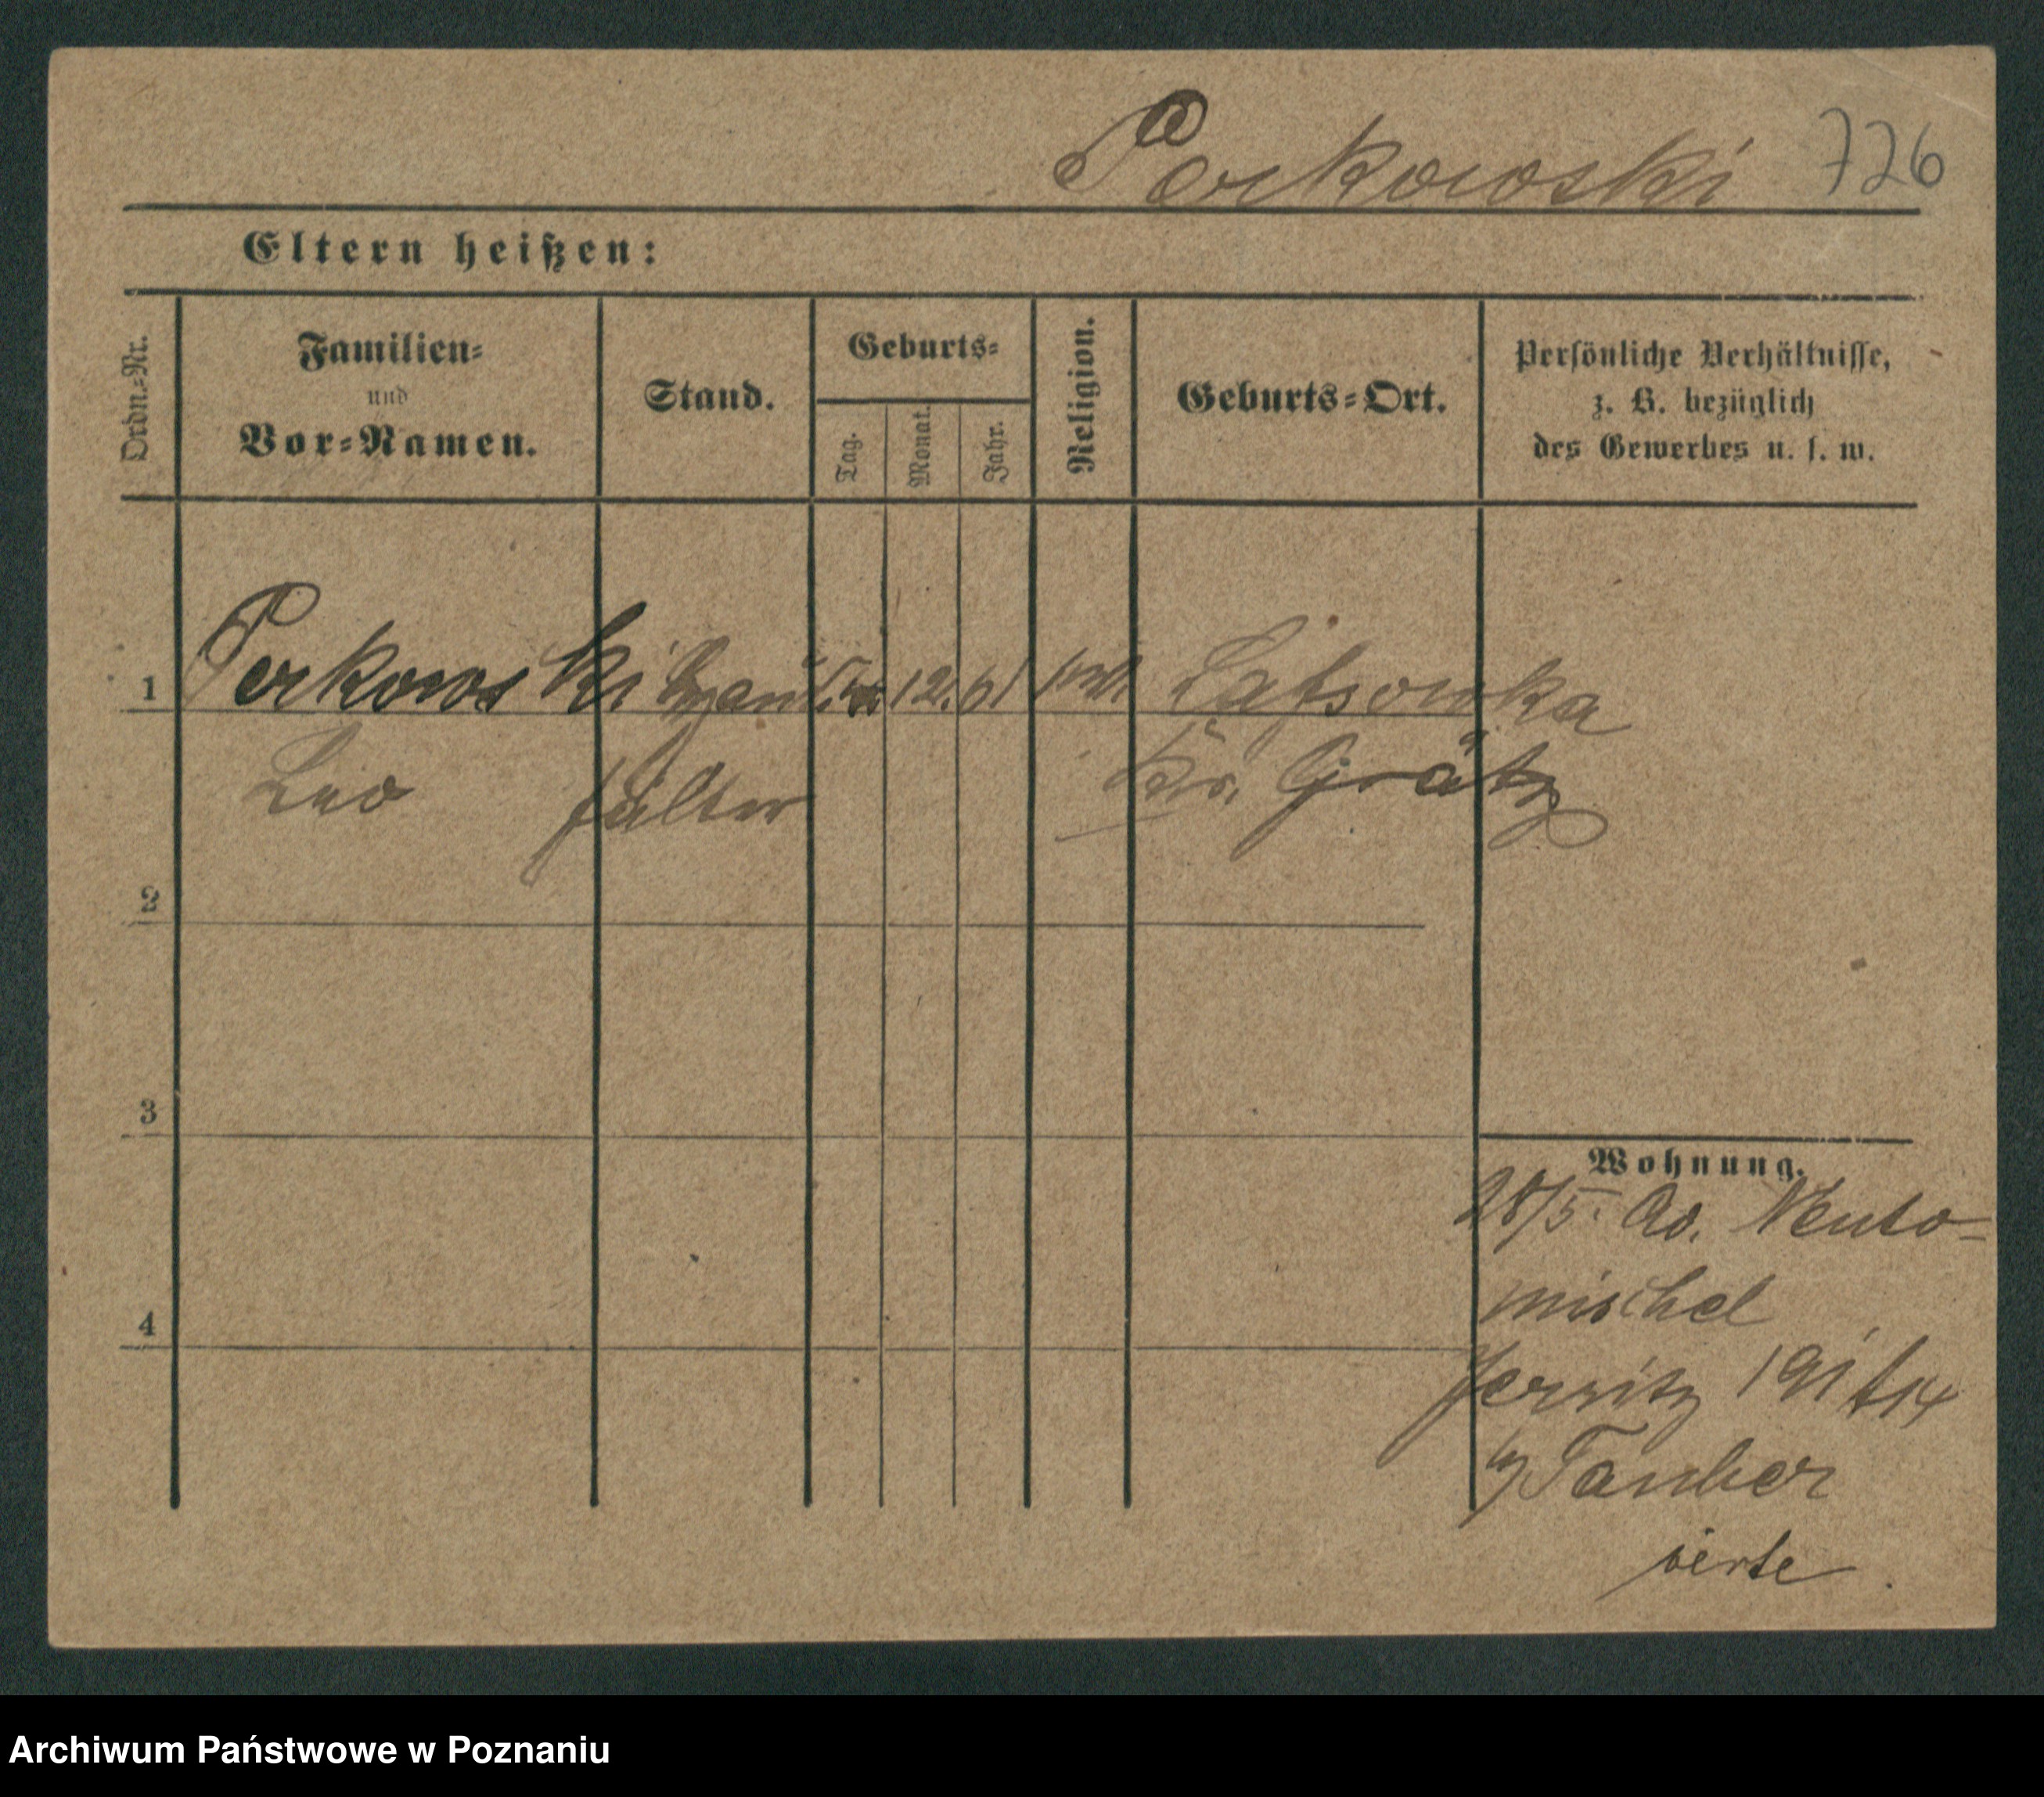 Perkowski 726
Eltern heißen:
Ordn.-Nr.
Familien-
und
Vor-Namen.
Stand.
Geburts-
Tag.
Monat.
Jahr.
Religion.
Geburts-Ort.
Persönliche Verhältnisse,
z. B. bezüglich
des Gewerbes u. s. w.
1 Perkowski 12. 61
Leo Kr. Grätz
2
3
4
Wohnung.
28/5. Ad. Neuto-
mischel
Jersitz 191
Tauber
Archiwum Państwowe w Poznaniu